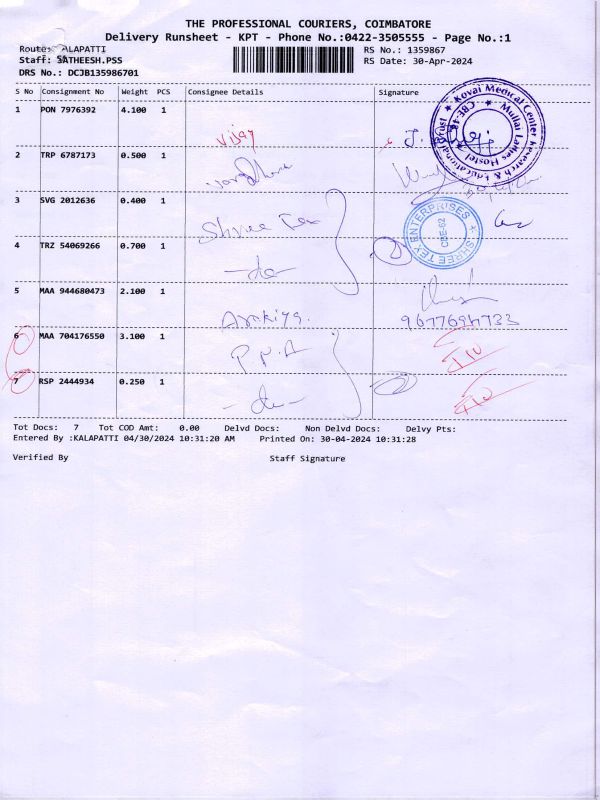 THE PROFESSIONAL COURIERS, COIMBATORE
Delivery Runsheet - KPT - Phone No.:0422-3505555 - Page No.:1
Route: ALAPATTI
RS No.: 1359867
Staff: SATHEESH.PSS
RS Date: 30-Apr-2024
DRS No.: DCJB135986701
S No Consignment No Weight PCS Consignee Details Signature
1 PON 7976392 4.100 1 Vijay
Kovai Medical Center Research & Educational Trust
Mullai Ladies Hostel
CBE-48
2 TRP 6787173 0.500 1
3 SVG 2012636 0.400 1 Shree Tex
SHREE TEX ENTERPRISES
CBE-62
4 TRZ 54069266 0.700 1 -do-
5 MAA 944680473 2.100 1
9677694733
6 MAA 704176550 3.100 1 P.P.A
7 RSP 2444934 0.250 1 -do-
Tot Docs: 7 Tot COD Amt: 0.00 Delvd Docs: Non Delvd Docs: Delvy Pts:
Entered By :KALAPATTI 04/30/2024 10:31:20 AM Printed On: 30-04-2024 10:31:28
Verified By Staff Signature